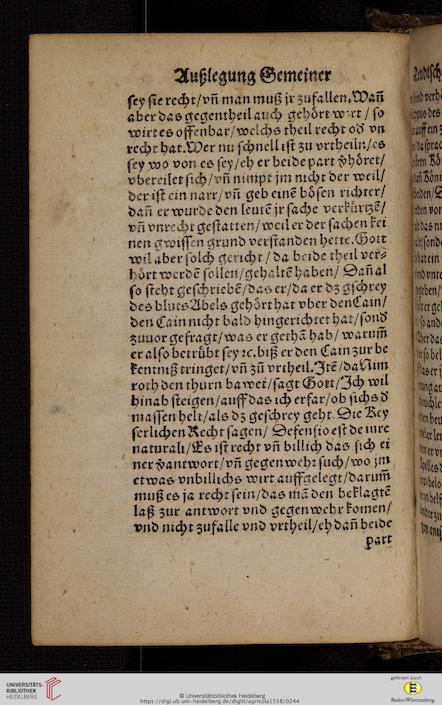 Außlegung Gemeiner
sey sie recht/vñ man muß jr zufallen. Wañ
aber das gegentheil auch gehört wirt / so
wirt es offenbar/welchs theil recht oď vn
recht hat. Wer nu schnell ist zu vrtheiln/es
sey wo von es sey/eh er beide part ṽhöret/
vbereilet sich/vñ nimpt jm nicht der weil/
der ist ein narr/vñ geb einẽ bösen richter/
dañ er wurde den leutẽ jr sache verkürtzẽ/
vñ vnrecht gestatten/weil er der sachen kei
nen gwissen grund verstanden hette. Gott
wil aber solch gericht / da beide theil ver⸗
hört werdẽ sollen/gehaltẽ haben/ Dañ al
so steht geschriebẽ/das er/da er dz gschrey
des bluts Abels gehört hat vber den Cain/
den Cain nicht bald hingerichtet hat/sonď
zuuor gefragt/was er gethã hab/ warum̃
er also betrübt sey ꝛc. biß er den Cain zur be
kentniß tringet/vñ zũ vrtheil. Itẽ/da Nim
roth den thurn bawet/sagt Gott/Ich wil
hinab steigen/auff das ich erfar/ob sichs ď
massen helt/als dz geschrey geht. Die Key
serlichen Recht sagen/ Defensio est de iure
naturali/Es ist recht vñ billich das sich ei
ner ṽantwort/vñ gegenweht such/wo jm
etwas vnbillichs wirt auffgelegt/darum̃
muß es ja recht sein/das mã den beklagtẽ
laß zur antwort vnd gegenwehr komen/
vnd nicht zufalle vnd vrtheil/eh dañ beide
part
UNIVERSITÄTS-
BIBLIOTHEK
HEIDELBERG
© Universitätsbibliothek Heidelberg
https://digi.ub.uni-heidelberg.de/diglit/agricola1558/0244
gefördert durch
Baden-Württemberg